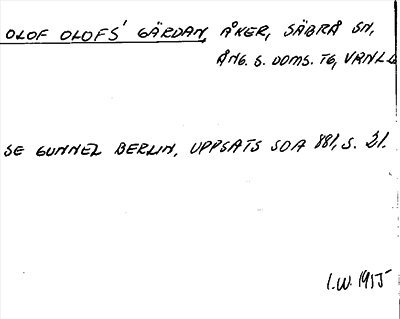 OLOF OLOFS' GÄRDAN, ÅKER, SÄBRÅ SN,
ÅNG. S. DOMS. TG, VRNLD
SE GUNNEL BERLIN, UPPSATS SOA 881, S. 21.
I.W. 1955